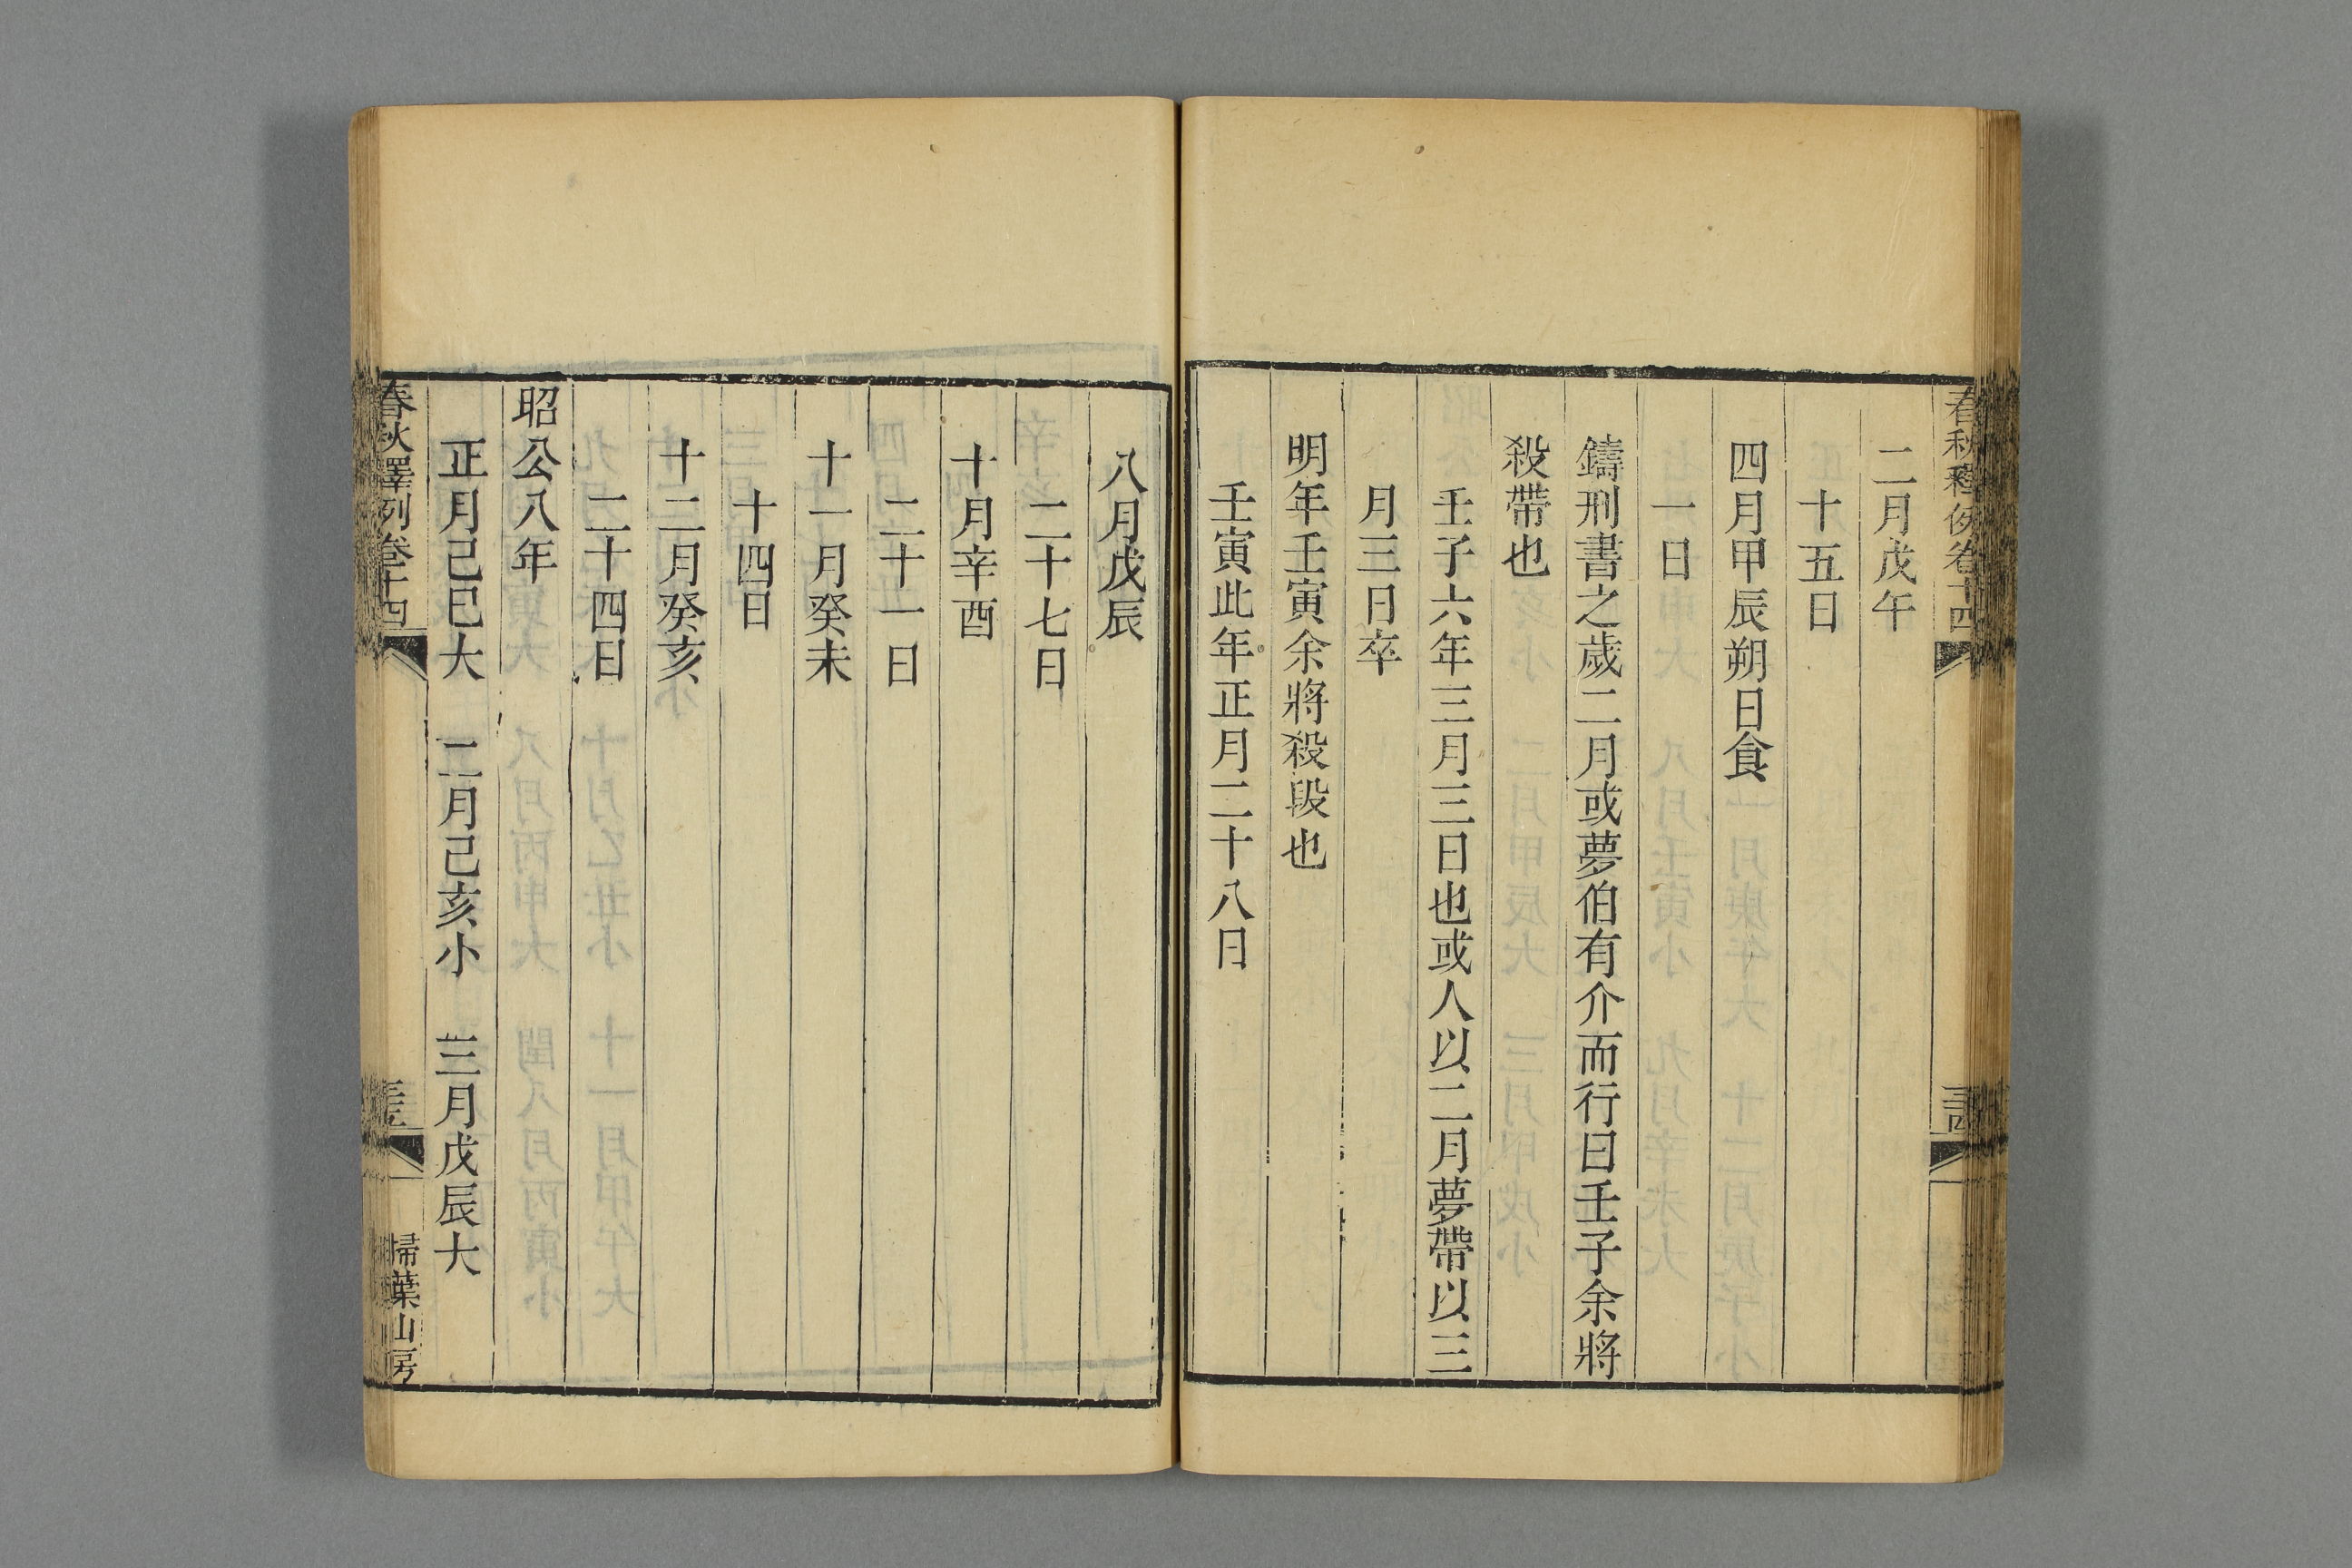 春秋釋例卷十四
二月戊午
十五日
四月甲辰朔日食
一日
鑄刑書之歲二月或夢伯有介而行曰壬子余將
殺帶也
壬子六年三月三日也或人以二月夢帶以三
月三日卒
明年壬寅余將殺段也
壬寅此年正月二十八日
八月戊辰
二十七日
十月辛酉
二十一日
十一月癸未
十四日
十二月癸亥
二十四日
昭公八年
正月己巳大　二月己亥小　三月戊辰大
春秋釋例卷十四
掃葉山房